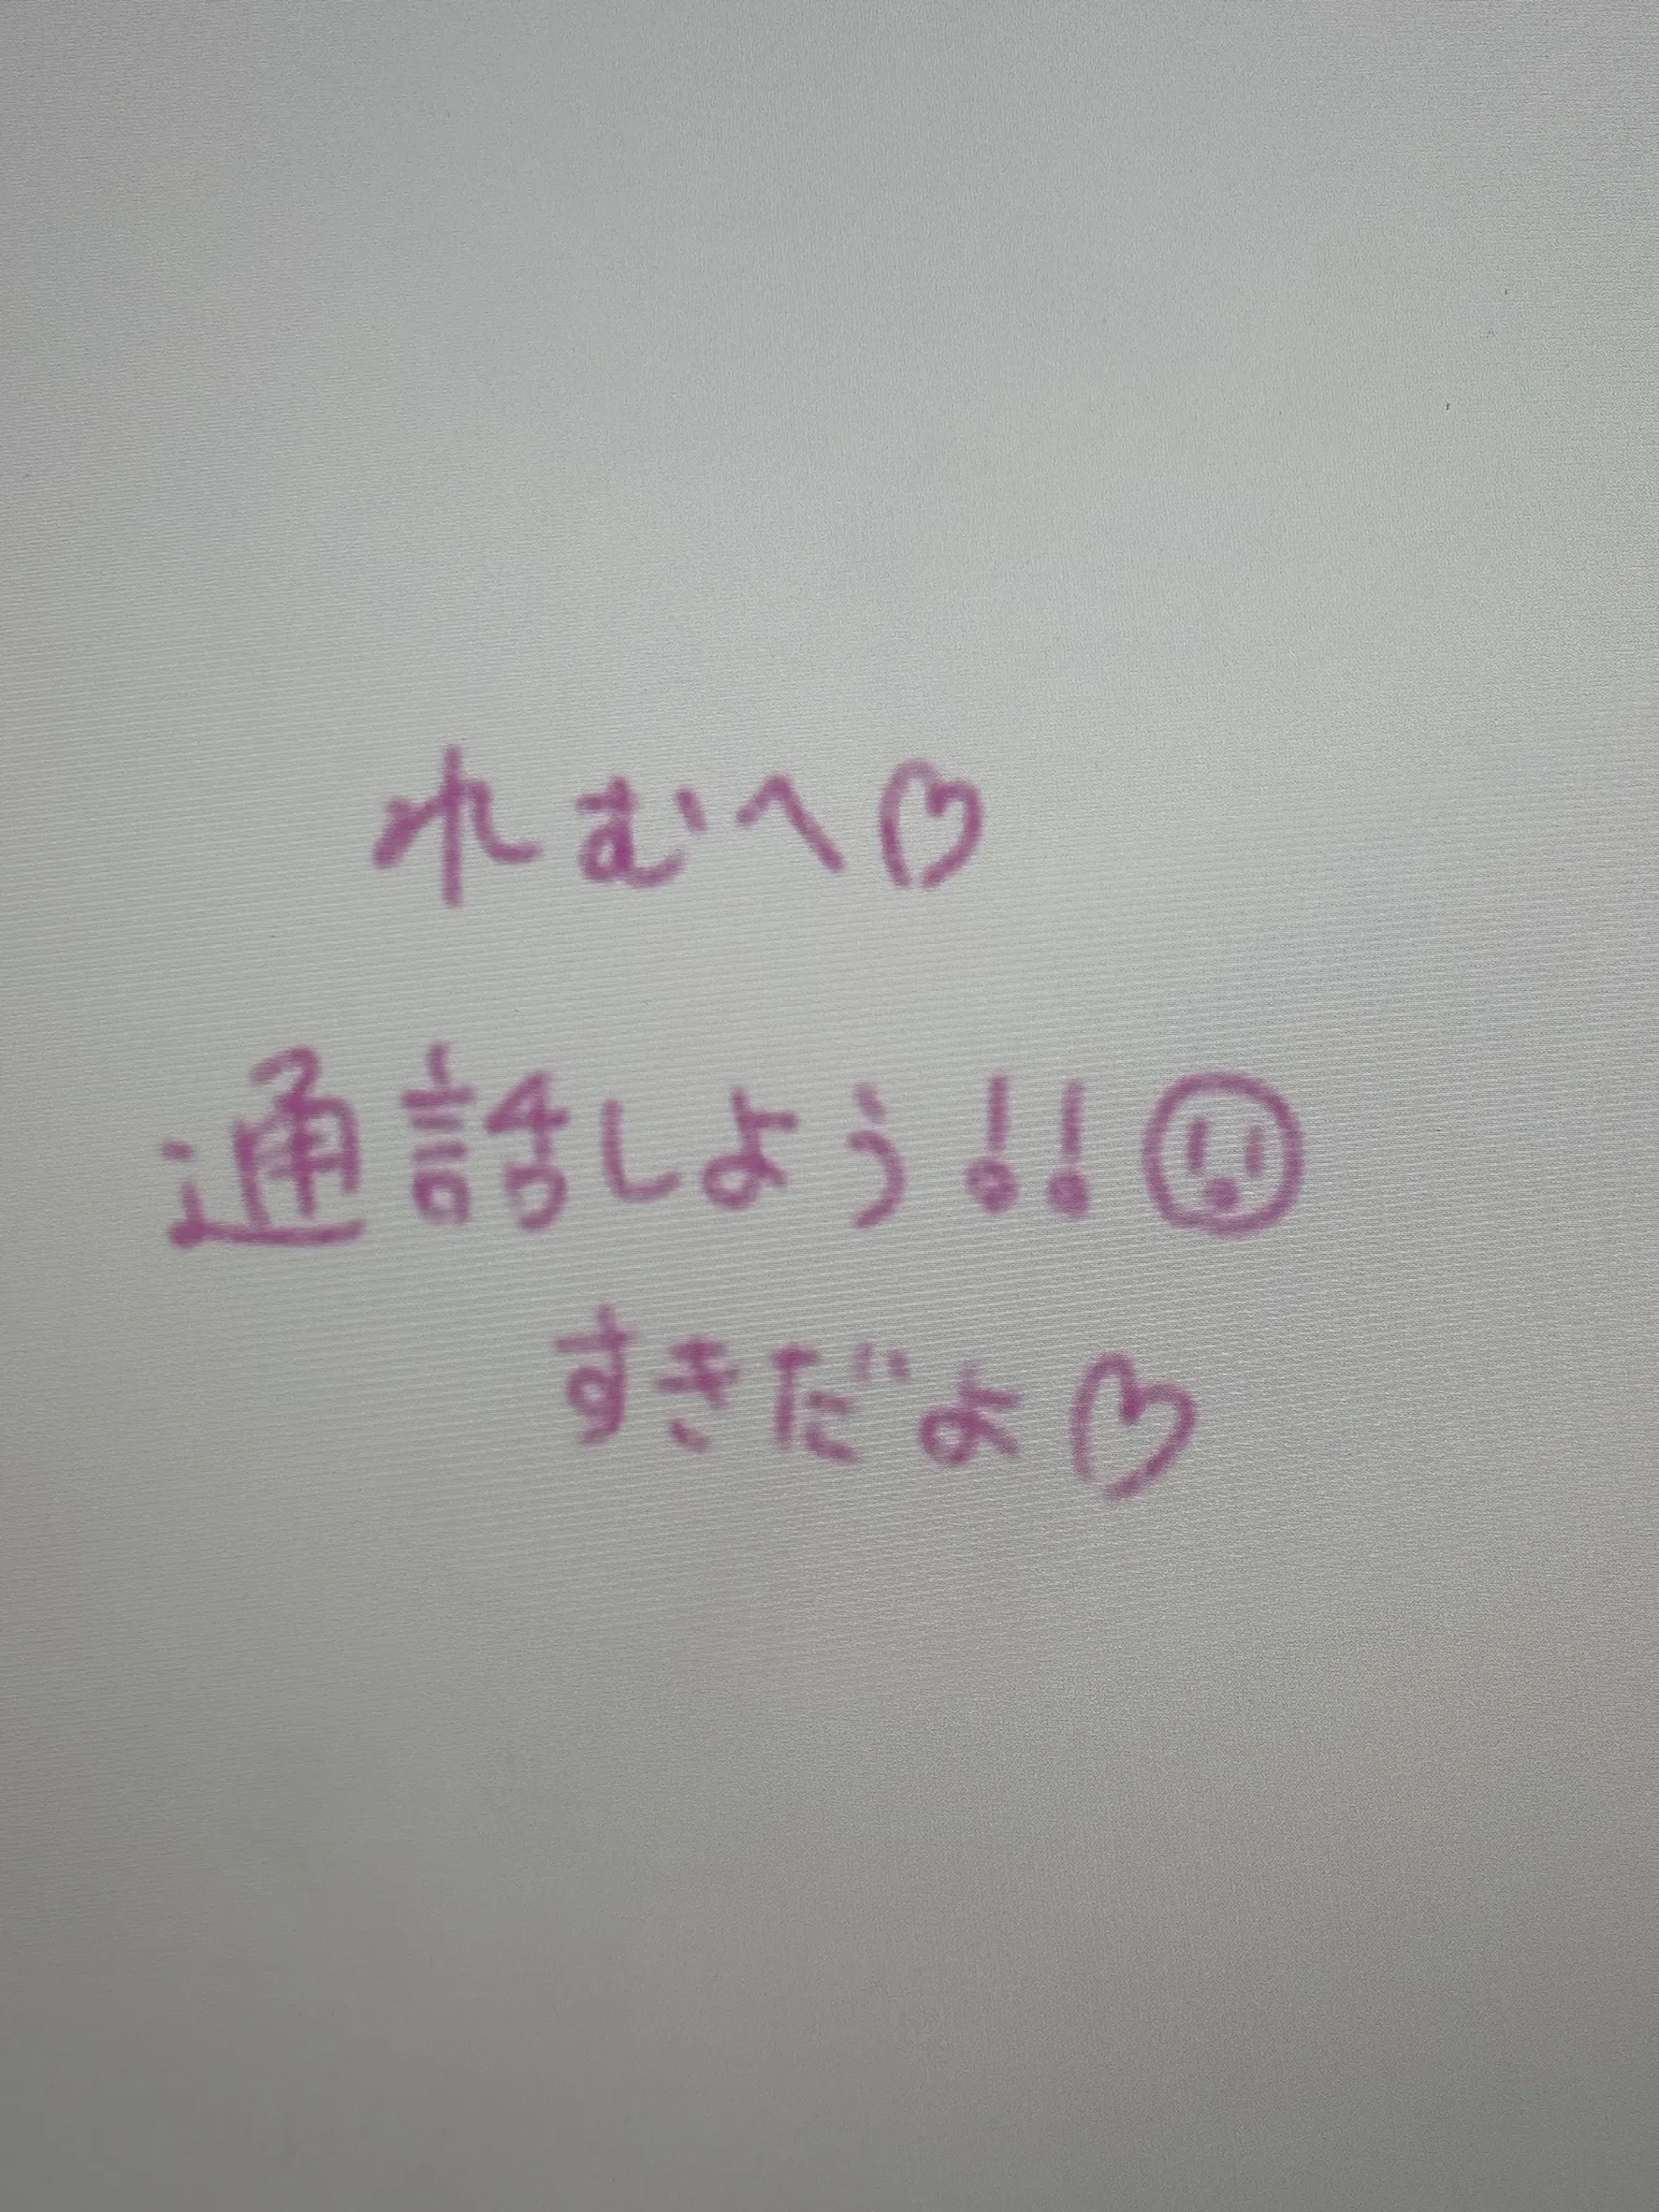 れむへ♡
通話しよう!!
すきだよ♡